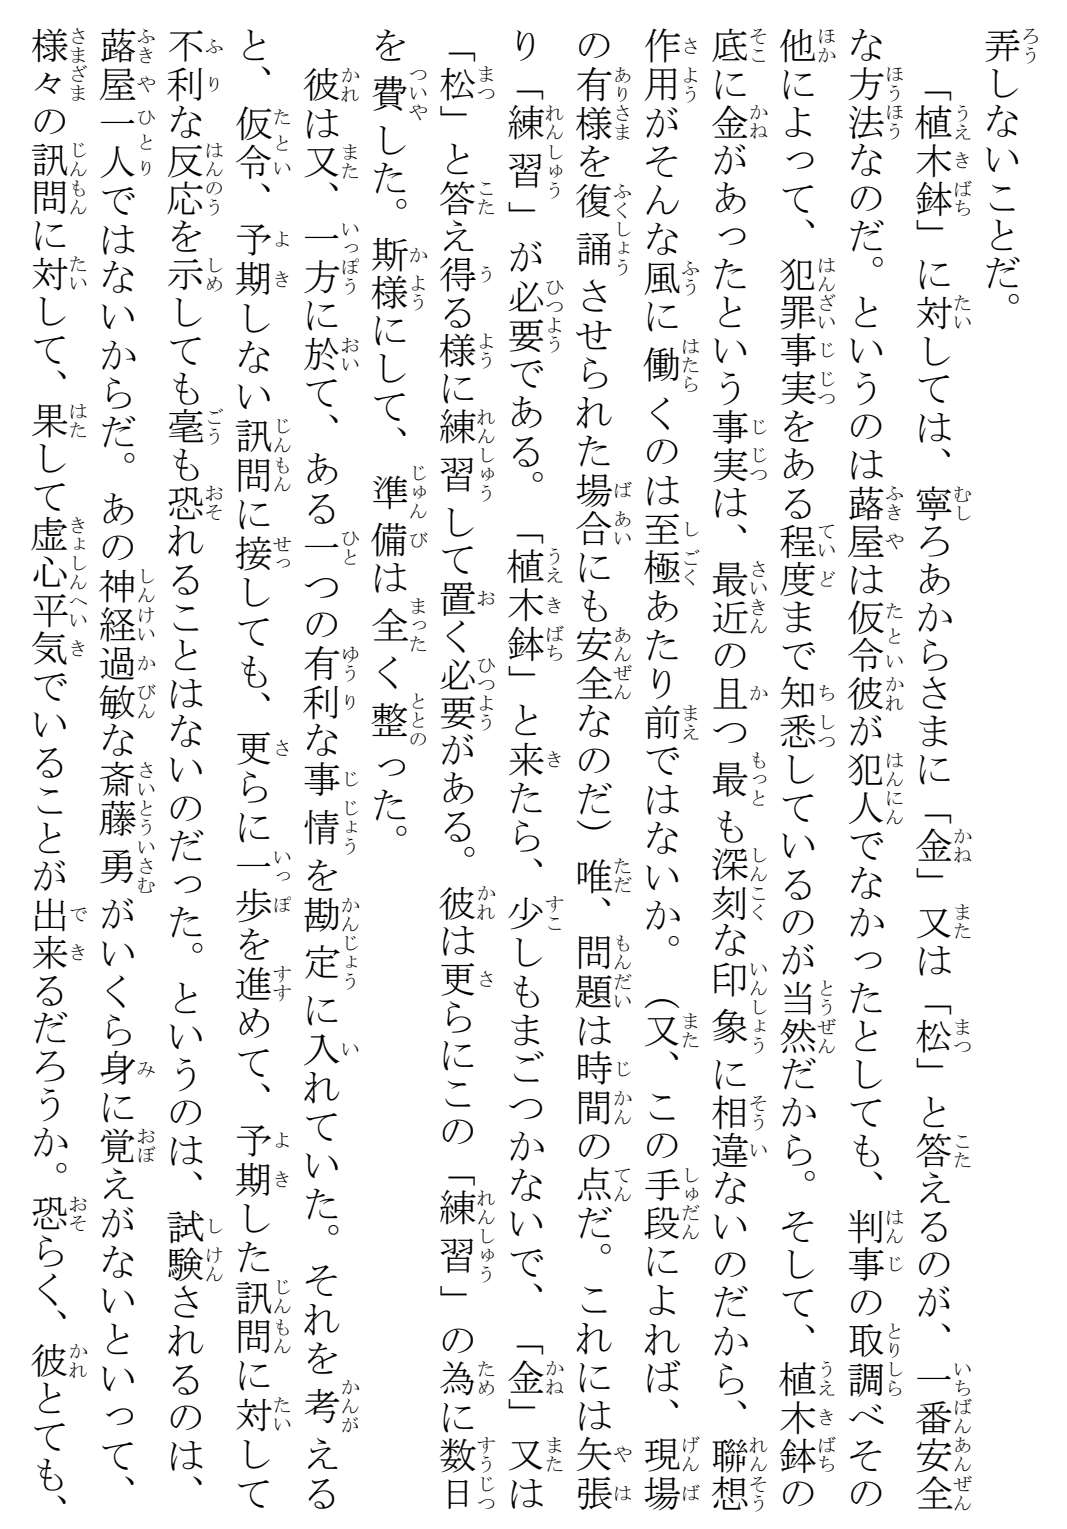 弄しないことだ。
「植木鉢」に対しては、寧ろあからさまに「金」又は「松」と答えるのが、一番安全
な方法なのだ。というのは蕗屋は仮令彼が犯人でなかったとしても、判事の取調べその
他によって、犯罪事実をある程度まで知悉しているのが当然だから。そして、植木鉢の
底に金があったという事実は、最近の且つ最も深刻な印象に相違ないのだから、聯想
作用がそんな風に働くのは至極あたり前ではないか。（又、この手段によれば、現場
の有様を復誦させられた場合にも安全なのだ）唯、問題は時間の点だ。これには矢張
り「練習」が必要である。「植木鉢」と来たら、少しもまごつかないで、「金」又は
「松」と答え得る様に練習して置く必要がある。彼は更らにこの「練習」の為に数日
を費した。斯様にして、準備は全く整った。
彼は又、一方に於て、ある一つの有利な事情を勘定に入れていた。それを考える
と、仮令、予期しない訊問に接しても、更らに一歩を進めて、予期した訊問に対して
不利な反応を示しても毫も恐れることはないのだった。というのは、試験されるのは、
蕗屋一人ではないからだ。あの神経過敏な斎藤勇がいくら身に覚えがないといって、
様々の訊問に対して、果して虚心平気でいることが出来るだろうか。恐らく、彼とても、